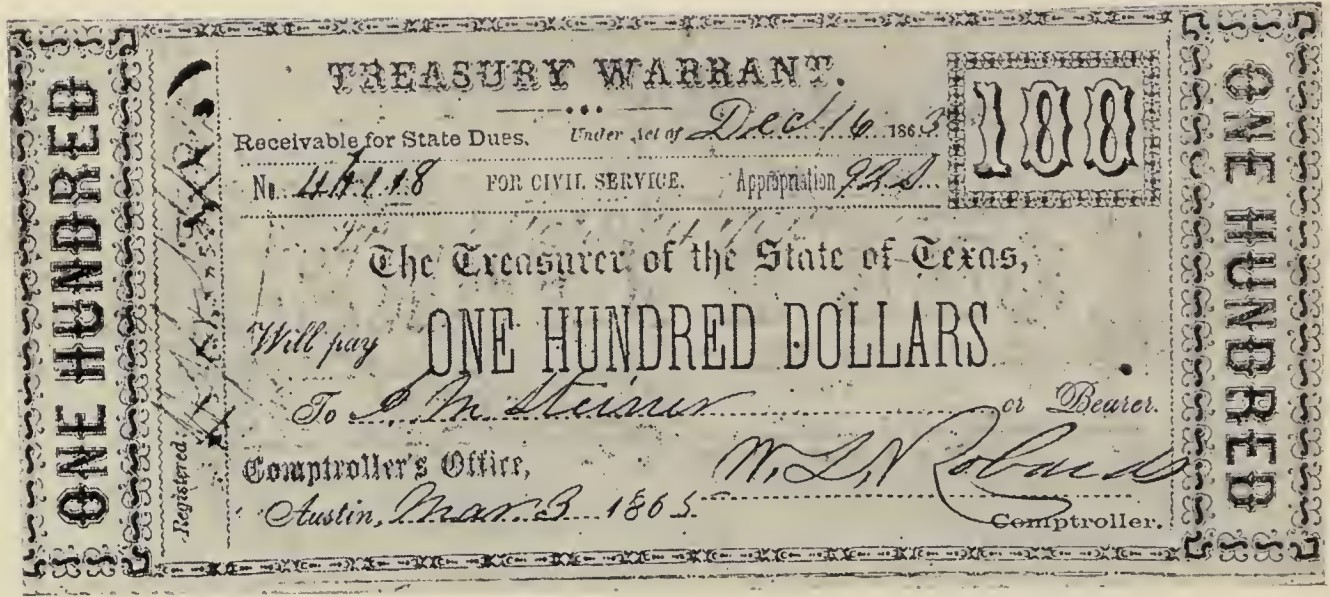 ONE HUNDRED
TREASURY WARRANT.
Receivable for State Dues. Under Act of Dec 16 1863
100
No. 4118 FOR CIVIL SERVICE. Appropriation
The Treasurer of the State of Texas,
Will pay ONE HUNDRED DOLLARS
To J M Steiner or Bearer.
Comptroller's Office,
Austin, Mar 3 1865
W. L. Robards
Comptroller.
Registered
ONE HUNDRED